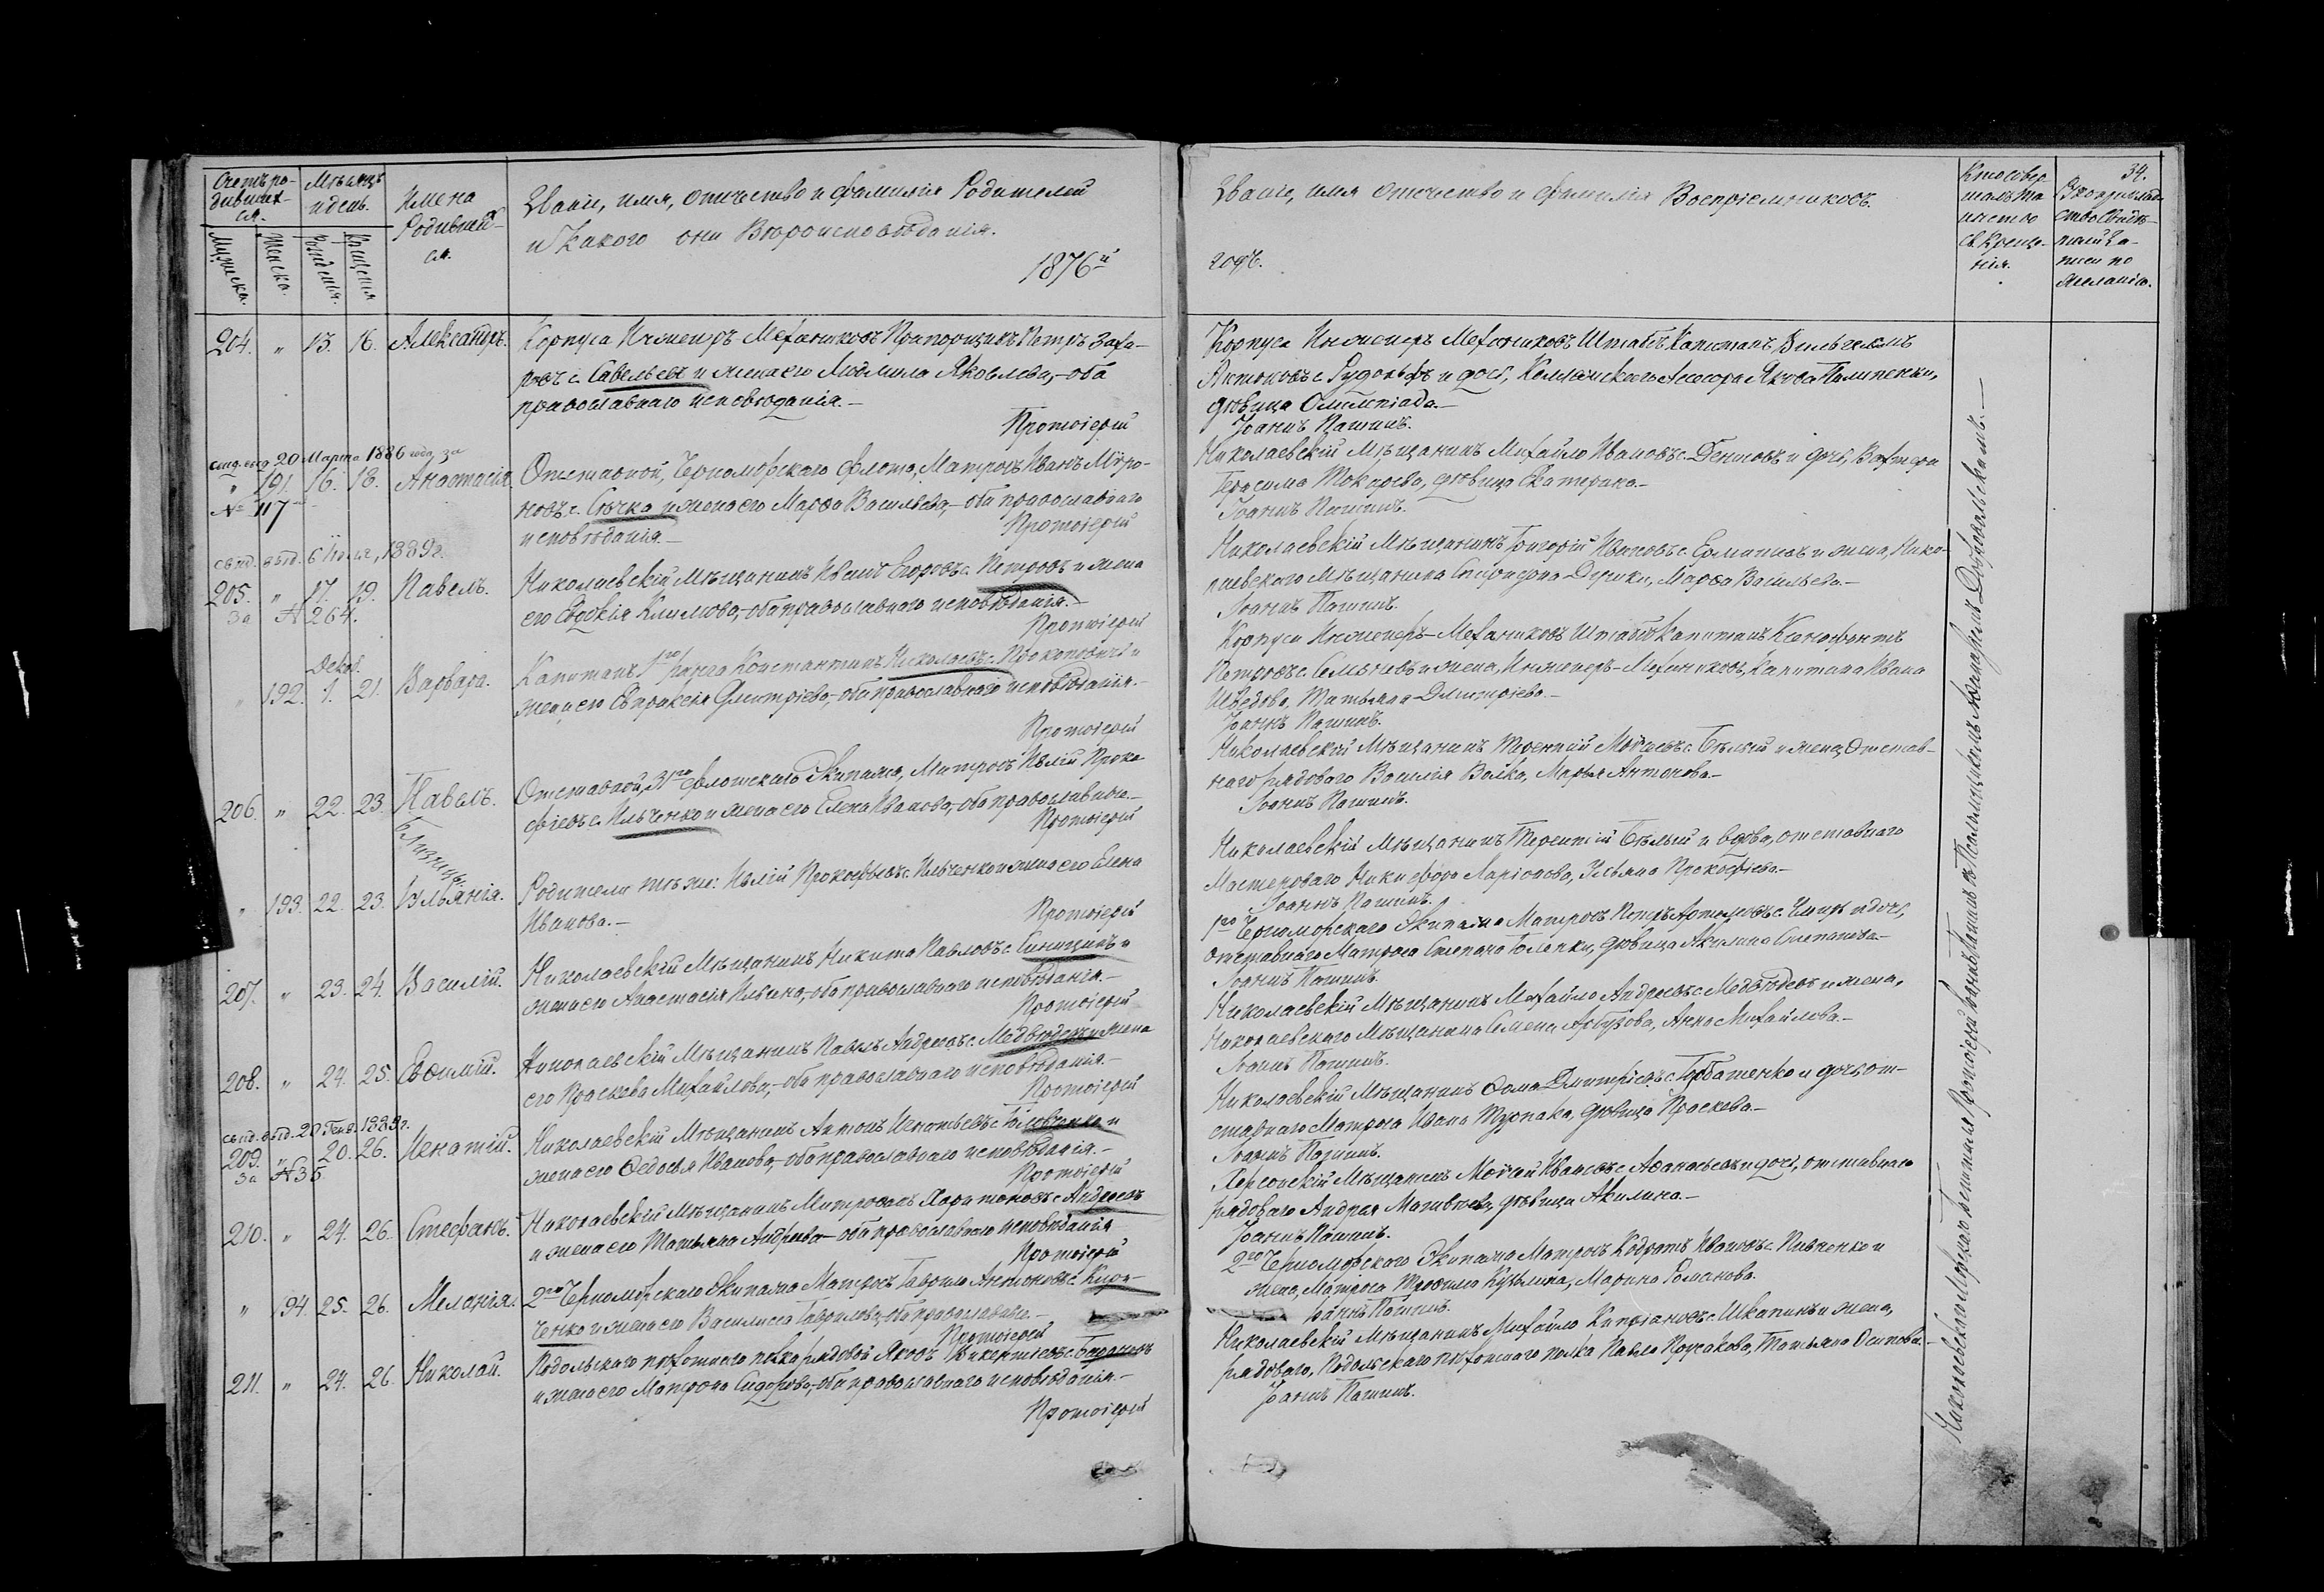 34.
Счетъ ро-
дивших-
ся.
Мѣсяцъ
и день.
Мужска.
Женска.
Рожденія.
Крещенія
Имена
Родивших-
ся.
Званіе, имя, отчество и фамилія Родителей
и какого они Вѣроисповѣданія.
1876й
Званіе, имя отчество и фамилія Воспріемниковъ.
годъ.
Кто совер
шалъ та
инство
Св. Креще-
нія.
ство свидѣ-
желанію.
204. " 15. 16. Александръ.
Корпуса Инженеръ-Механиковъ Прапорщикъ Петръ Заха-
ровъ с. Савельевъ и жена его Людмила Яковлева,-оба
православнаго исповѣданія.-
Протоіерей
Корпуса Инженеръ Механиковъ Штабсъ Капитанъ Вильгельмъ
Антоновъ с. Рудольфъ и дочь, Коллежскаго Ассесора Якова
дѣвица Олимпіада.-
Іоаннъ
свид. выд. 20 Марта 1886 года, за
" 191. 16. 18. Анастасія.
№ 117
Отставной, Черноморскаго флота, Матросъ Иванъ Миро-
новъ с. Сѣчка и жена его Марѳа Васильева,-оба православнаго
исповѣданія.-
Протоіерей
Николаевскій Мѣщанинъ Михайло Ивановъ с. Денисовъ и дочь, Вахтера
Герасима Токарева, дѣвица Екатерина.-
Іоаннъ
свид. выд. 6 1889 г.
205. " 17. 19. Павелъ.
За № 264.
Николаевскій Мѣщанинъ Иванъ Егоровъ с. Петровъ и жена
его Евдокія Климова,-оба православнаго исповѣданія.-
Протоіерей
Николаевскій Мѣщанинъ Григорій Ивановъ с. и жена, Нико-
лаевскаго Мѣщанина Спиридона Марѳа Васильева.-
Іоаннъ
Декаб.
" 192. 1. 21. Варвара.
Капитанъ 1го ранга Константинъ Николаевъ с. Прокоповичъ и
жена его Евпраксія Дмитріева,-оба православнаго исповѣданія.-
Протоіерей
Корпуса Инженеръ-Механиковъ Штабсъ Капитанъ Ксенофонтъ
Петровъ с. и жена, Инженеръ-Механиковъ, Капитана Ивана
Шведова, Татьяна Дмитріева.-
Іоаннъ
206. " 22. 23. Павелъ.
Близнецы.
Отставной, 31го флотскаго Экипажа, Матросъ Илій Проко-
фіевъ с. Ильченко и жена его Елена Иванова,-оба православные.-
Протоіерей
Николаевскій Мѣщанинъ Терентій Моисеевъ с. Бѣлый и жена, Отстав-
наго рядоваго Василія Волка, Марья Антонова.-
Іоаннъ
" 193. 22. 23. Ульянія.
Родители тѣ же: Илій Прокофьевъ с. Ильченко и жена его Елена
Иванова.-
Протоіерей
Николаевскій Мѣщанинъ Терентій Бѣлый и вдова, отставнаго
Мастероваго Никифора Ларіонова, Ульяна Прокофіева.-
Іоаннъ
207. " 23. 24. Василій.
Николаевскій Мѣщанинъ Никита Павловъ с. Синицинъ и
жена его Анастасія Ильина,-оба православнаго исповѣданія.-
Протоіерей
1го Черноморскаго Экипажа Матросъ Петръ Артемовъ с. и дочь,
отставнаго Матроса Степана дѣвица Акилина Степанова.-
Іоаннъ
208. " 24. 25. Евѳимій.
Николаевскій Мѣщанинъ Павелъ Андреевъ с. Медвѣдевъ и жена
его Прасковья Михайлова,-оба православнаго исповѣданія.-
Протоіерей
Николаевскій Мѣщанинъ Михайло Андреевъ с. Медвѣдевъ и жена,
Николаевскаго Мѣщанина Семена Арбузова, Анна Михайлова.-
Іоаннъ
свид. выд. 20 Генв. 1889 г.
209. " 20. 26. Игнатій.
За № 35.
Николаевскій Мѣщанинъ Антонъ Игнатьевъ с. Головченко и
жена его Ѳедосья Иванова,-оба православнаго исповѣданія.-
Протоіерей
Николаевскій Мѣщанинъ Ѳома Дмитріевъ с. Горбатенко и дочь, от-
ставнаго Матроса Ивана дѣвица Прасковья.-
Іоаннъ
210. " 24. 26. Стефанъ.
Николаевскій Мѣщанинъ Митрофанъ Харитоновъ с. Андреевъ
и жена его Татьяна Андреева-оба православнаго исповѣданія
Протоіерей
Херсонскій Мѣщанинъ Моисей Ивановъ с. Аѳанасьевъ и дочь, отставнаго
рядоваго Андрея Матвѣева, дѣвица Акилина.-
Іоаннъ
" 194. 25. 26. Меланія.
2го Черноморскаго Экипажа Матросъ Гаврило Антоновъ с. Кири-
ченко и жена его Василиса Гаврилова, оба православные.-
Протоіерей
2го Черноморскаго Экипажа Матросъ Кодратъ Ивановъ с. Пивненко и
жена, Матроса Трофима Кузьмина, Марина Романова.
Іоаннъ
211. " 24. 26. Николай.
Подольскаго пѣхотнаго полка рядовой Яковъ Викентіевъ с.
и жена его Матрона Сидорова,-оба православнаго исповѣданія.-
Протоіерей
Николаевскій Мѣщанинъ Михайло Кипріановъ с. Шкапинъ и жена,
рядоваго, Подольскаго пѣхотнаго полка Павла Татьяна Осипова.-
Іоаннъ